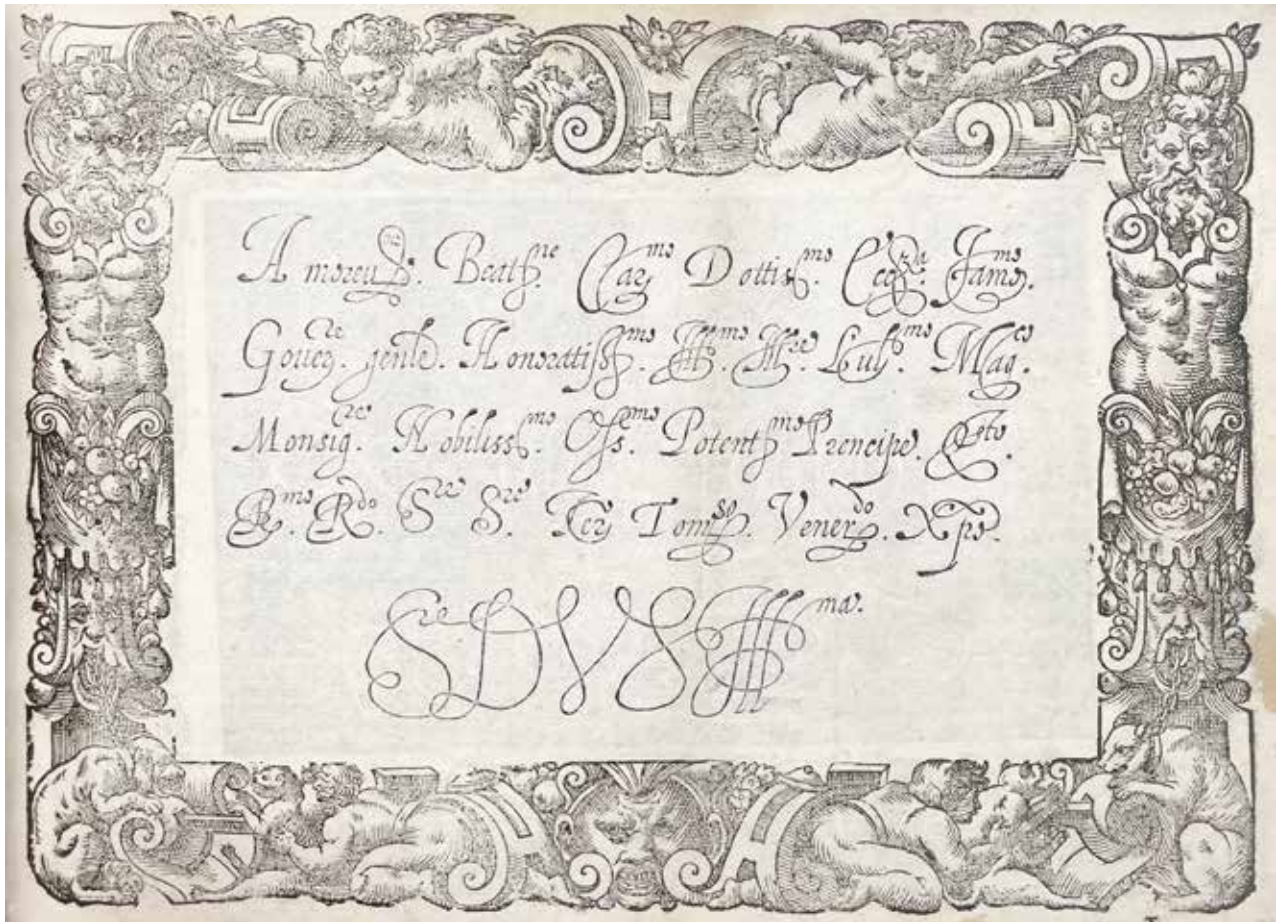 Amoreu^ne. Beat^ne Car^mo Dottiss^mo. Ecc^za. Fam^mo.
Gover^re. gentl. Honorattiss^mo. Ill^mo. Ill^re Lus^mo. Mag^co.
Monsig^re. Nobiliss^mo. Oss^mo. Potent^mo Prencipe. Q^to.
R^mo. R^do. S^re S^re. Ter Tom^so. Vener^do. Xpo.
S^re D V S Ill^ma.